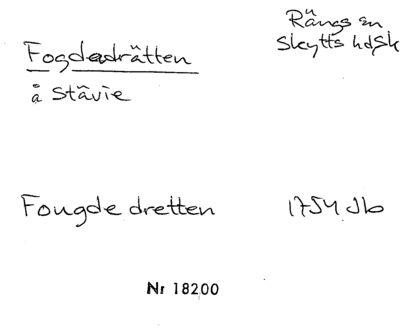 Fogdedrätten
å Stävie
Rängs sn
Skytts hdSk
Fougde dretten
1754 Jb
Nr 18200